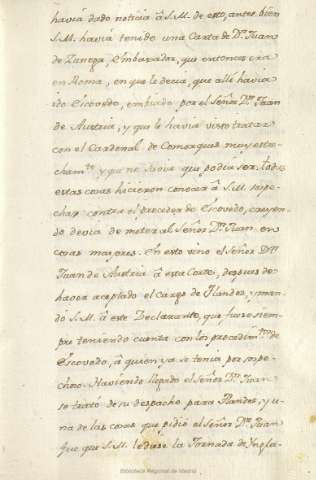 havia dado noticia â S.M. de esto, antes bien
S.M. havia tenido una Carta de Dn. Juan
de Zuñiga, Embaxador, que entonces era
en Roma, en que le decia, que alli havia
ido Escovedo, embiado por el Señor Dn. Juan
de Austria, y que le havia visto tratar
con el Cardenal de Como que muy estre-
chamte. y que no savia que podia ser, todas
estas cosas hicieron â S.M. sospe-
char contra el proceder de Escovedo, creyen-
do devia de meter al Señor Dn. Juan en
cosas mayores. En esto vino el Señor Dn.
Juan de Austria â esta Corte, despues de
haver aceptado el cargo de Flandes, y man-
dó S.M. â este Declarante, que fuese siem-
pre teniendo cuenta con los procedimtos. de
Escovedo, â quien ya se tenia por sospe-
choso. Haviendo llegado el Señor Dn. Juan
se trató de su despacho para Flandes, y u-
na de las cosas que pidió el Señor Dn. Juan
fue que S.M. le diese la Jornada de Ingla-
Biblioteca Regional de Madrid